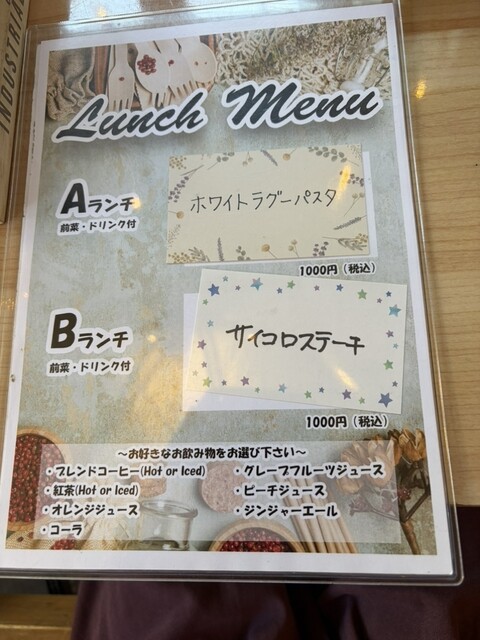 INDUSTRIA
Lunch Menu
Aランチ
前菜・ドリンク付
ホワイトラグーパスタ
1000円(税込)
Bランチ
前菜・ドリンク付
サイコロステーキ
1000円(税込)
～お好きなお飲み物をお選び下さい～
・ブレンドコーヒー(Hot or Iced)
・紅茶(Hot or Iced)
・オレンジジュース
・コーラ
・グレープフルーツジュース
・ピーチジュース
・ジンジャーエール